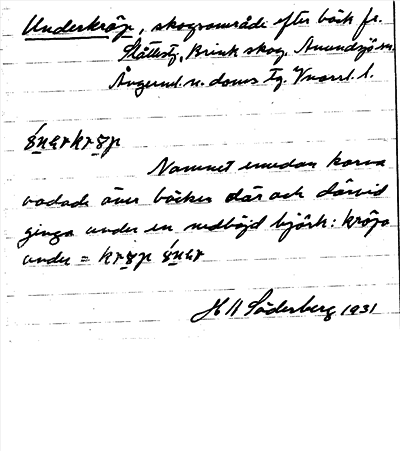 Underkröp, skogsområde efter bäck fr.
Slåttestj, Brink skog, Anundsjö sn.
Ångerml. n. doms tg. Vnorrl. l.
Namnet emedan korna
vadade över bäcken där och därvid
gingo under en nedböjd björk: kröpo
under = 
H W Söderberg 1931